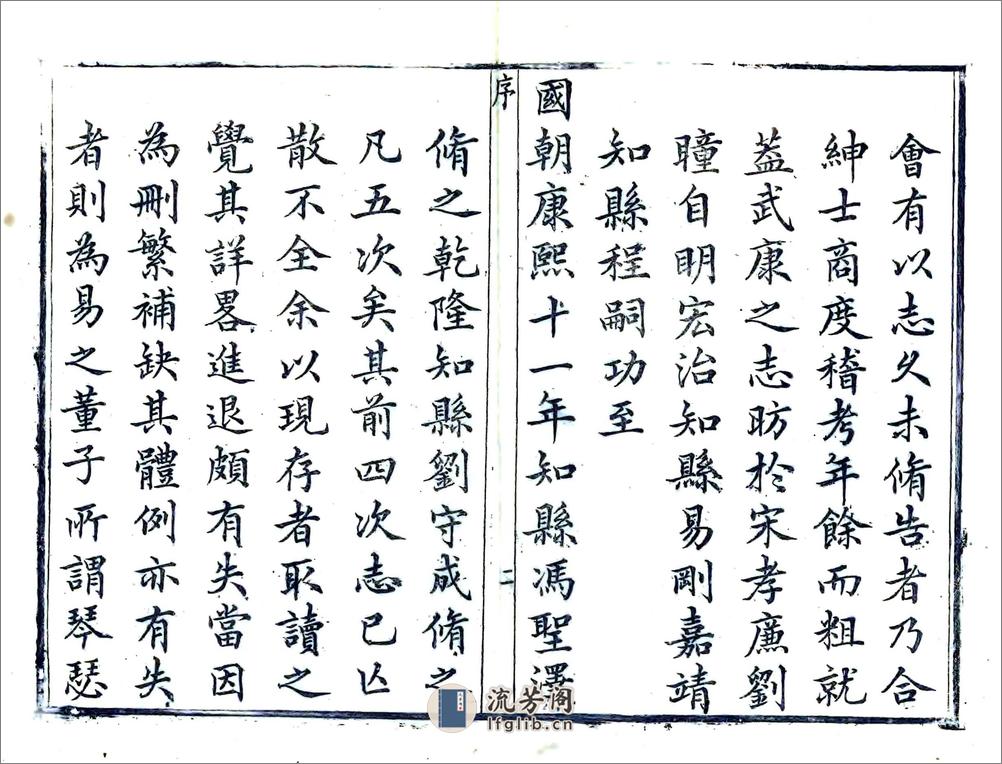 會有以志久未脩告者乃合
紳士商度稽考年餘而粗就
葢武康之志昉於宋孝廉劉
瞳自明宏治知縣易剛嘉靖
知縣程嗣功至
國朝康熙十一年知縣馮聖澤
序
二
脩之乾隆知縣劉守成脩之
凡五次矣其前四次志已亾
散不全余以現存者取讀之
覺其詳畧進退頗有失當因
為刪繁補缺其體例亦有失
者則為易之董子所謂琴瑟
流芳阁
lfglib.cn